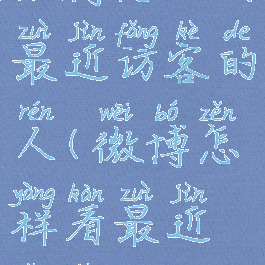 zuì jìn fǎng kè de
最近访客的
rén wēi bó zěn
人(微博怎
yàng kàn zuì jìn
样看最近